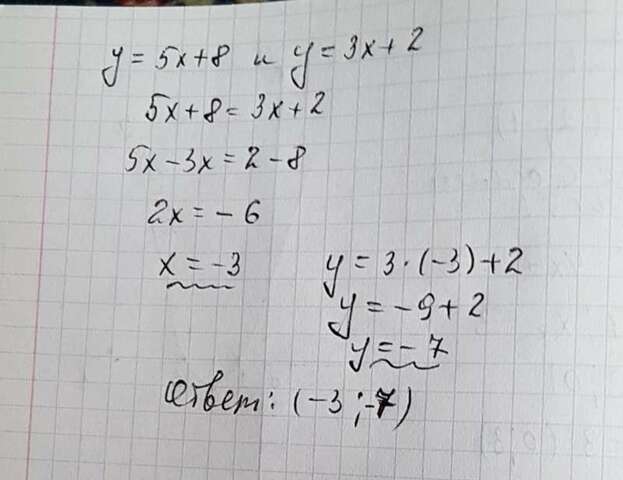 y = 5x+8 и y = 3x+2
5x+8 = 3x+2
5x-3x = 2-8
2x = -6
x = -3
y = 3·(-3)+2
y = -9+2
y = -7
Ответ: (-3;-7)